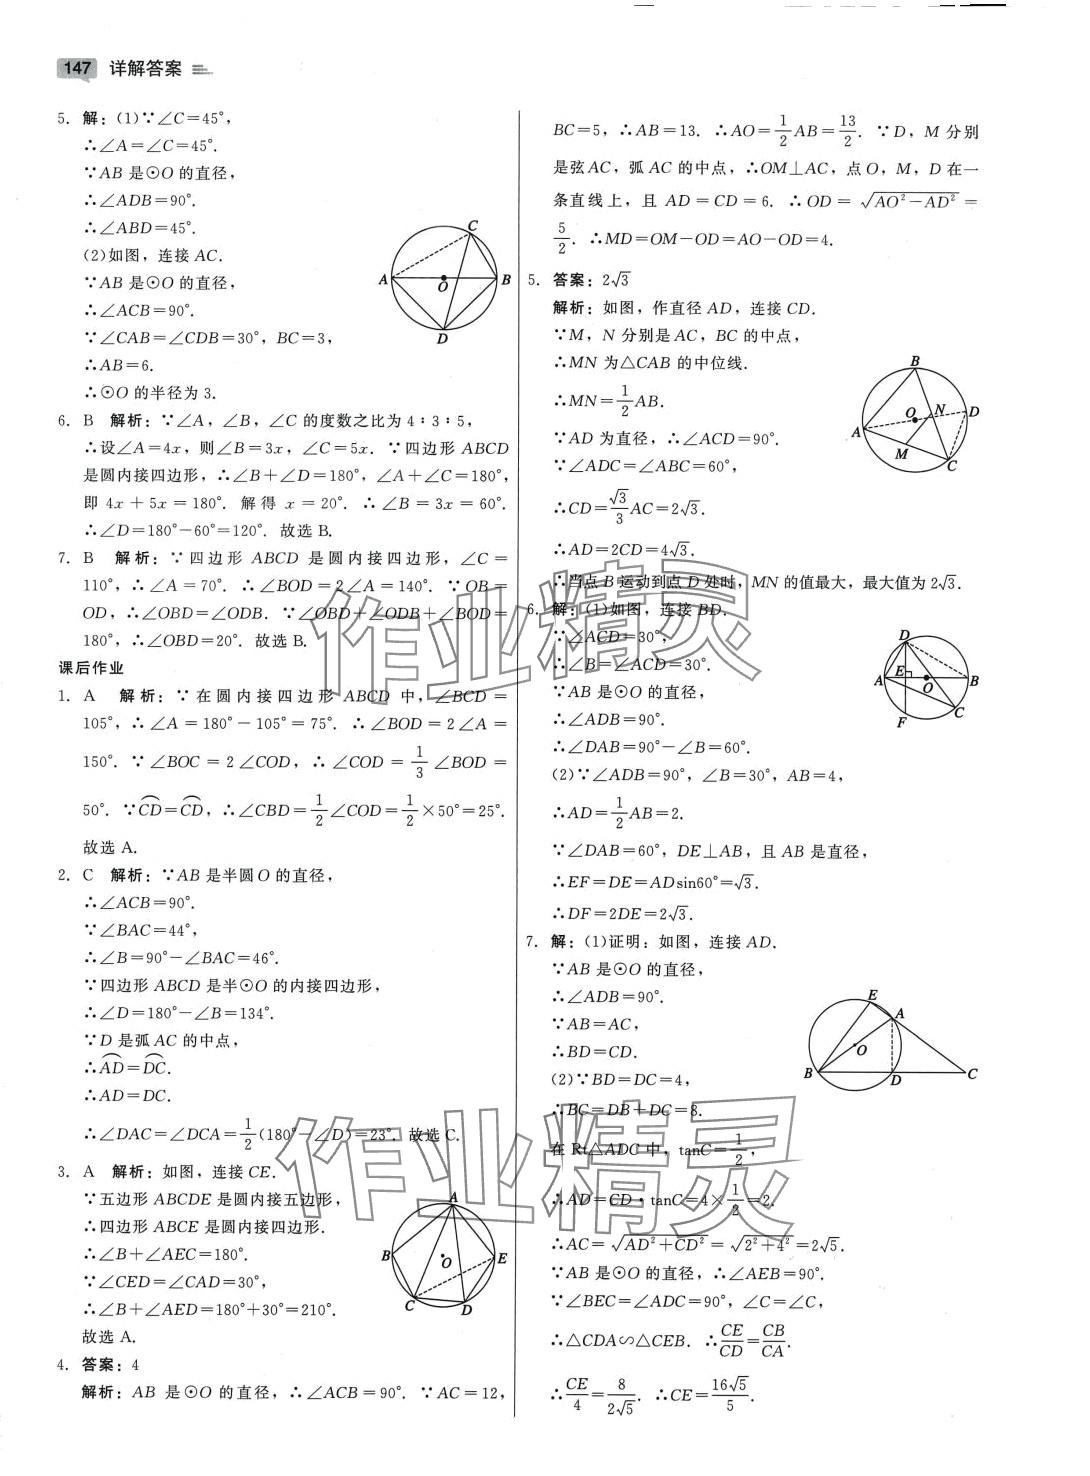 147 详解答案
5. 解：(1)∵∠C=45°，
∴∠A=∠C=45°.
∵AB 是⊙O 的直径，
∴∠ADB=90°.
∴∠ABD=45°.
(2)如图，连接 AC.
∵AB 是⊙O 的直径，
∴∠ACB=90°.
∵∠CAB=∠CDB=30°，BC=3，
∴AB=6.
∴⊙O 的半径为 3.
C
A
O
B
D
6. B 解析：∵∠A，∠B，∠C 的度数之比为 4∶3∶5，
∴设∠A=4x，则∠B=3x，∠C=5x. ∵四边形 ABCD
是圆内接四边形，∴∠B+∠D=180°，∠A+∠C=180°，
即 4x+5x=180°. 解得 x=20°. ∴∠B=3x=60°.
∴∠D=180°-60°=120°. 故选 B.
7. B 解析：∵四边形 ABCD 是圆内接四边形，∠C=
110°，∴∠A=70°. ∴∠BOD=2∠A=140°. ∵OB=
OD，∴∠OBD=∠ODB. ∵∠OBD+∠ODB+∠BOD=
180°，∴∠OBD=20°. 故选 B.
课后作业
1. A 解析：∵在圆内接四边形 ABCD 中，∠BCD=
105°，∴∠A=180°-105°=75°. ∴∠BOD=2∠A=
150°. ∵∠BOC=2∠COD，∴∠COD=1/3∠BOD=
50°. ∵⌒CD=⌒CD，∴∠CBD=1/2∠COD=1/2×50°=25°.
故选 A.
2. C 解析：∵AB 是半圆 O 的直径，
∴∠ACB=90°.
∵∠BAC=44°，
∴∠B=90°-∠BAC=46°.
∵四边形 ABCD 是半⊙O 的内接四边形，
∴∠D=180°-∠B=134°.
∵D 是弧 AC 的中点，
∴⌒AD=⌒DC.
∴AD=DC.
∴∠DAC=∠DCA=1/2(180°-∠D)=23°. 故选 C.
3. A 解析：如图，连接 CE.
∵五边形 ABCDE 是圆内接五边形，
∴四边形 ABCE 是圆内接四边形.
∴∠B+∠AEC=180°.
∵∠CED=∠CAD=30°，
∴∠B+∠AED=180°+30°=210°.
故选 A.
A
B
O
E
C
D
4. 答案：4
解析：AB 是⊙O 的直径，∴∠ACB=90°. ∵AC=12，
BC=5，∴AB=13. ∴AO=1/2AB=13/2. ∵D，M 分别
是弦AC，弧 AC 的中点，∴OM⊥AC，点 O，M，D 在一
条直线上，且 AD=CD=6. ∴OD=√(AO²-AD²)=
5/2. ∴MD=OM-OD=AO-OD=4.
5. 答案：2√3
解析：如图，作直径 AD，连接 CD.
∵M，N 分别是 AC，BC 的中点，
∴MN 为△CAB 的中位线.
∴MN=1/2AB.
∵AD 为直径，∴∠ACD=90°.
∵∠ADC=∠ABC=60°，
∴CD=√3/3AC=2√3.
∴AD=2CD=4√3.
∴当点 B 运动到点 D 处时，MN 的值最大，最大值为 2√3.
B
O
N
D
A
M
C
6. 解：(1)如图，连接 BD.
∵∠ACD=30°，
∴∠B=∠ACD=30°.
∵AB 是⊙O 的直径，
∴∠ADB=90°.
∴∠DAB=90°-∠B=60°.
(2)∵∠ADB=90°，∠B=30°，AB=4，
∴AD=1/2AB=2.
∵∠DAB=60°，DE⊥AB，且 AB 是直径，
∴EF=DE=ADsin60°=√3.
∴DF=2DE=2√3.
D
E
A
O
B
F
C
7. 解：(1)证明：如图，连接 AD.
∵AB 是⊙O 的直径，
∴∠ADB=90°.
∵AB=AC，
∴BD=CD.
(2)∵BD=DC=4，
∴BC=DB+DC=8.
在 Rt△ADC 中，tanC=1/2，
∴AD=CD·tanC=4×1/2=2.
∴AC=√(AD²+CD²)=√(2²+4²)=2√5.
∵AB 是⊙O 的直径，∴∠AEB=90°.
∵∠BEC=∠ADC=90°，∠C=∠C，
∴△CDA∽△CEB. ∴CE/CD=CB/CA.
∴CE/4=8/2√5. ∴CE=16√5/5.
E
A
O
B
D
C
作业精灵
作业精灵